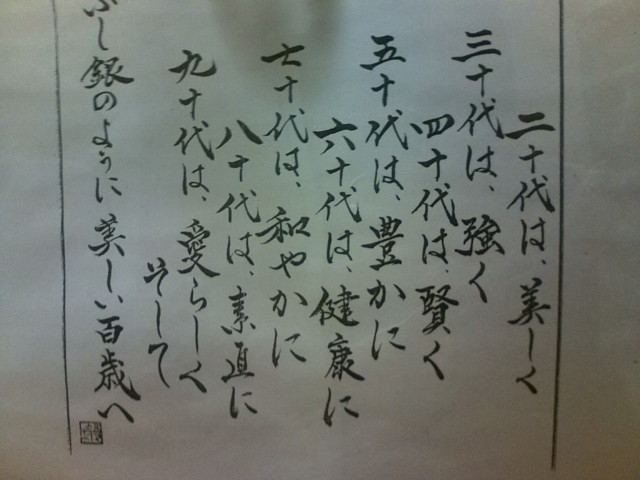 二十代は、美しく
三十代は、強く
四十代は、賢く
五十代は、豊かに
六十代は、健康に
七十代は、和やかに
八十代は、素直に
九十代は、愛らしく
そして
ぶし銀のように美しい百歳へ